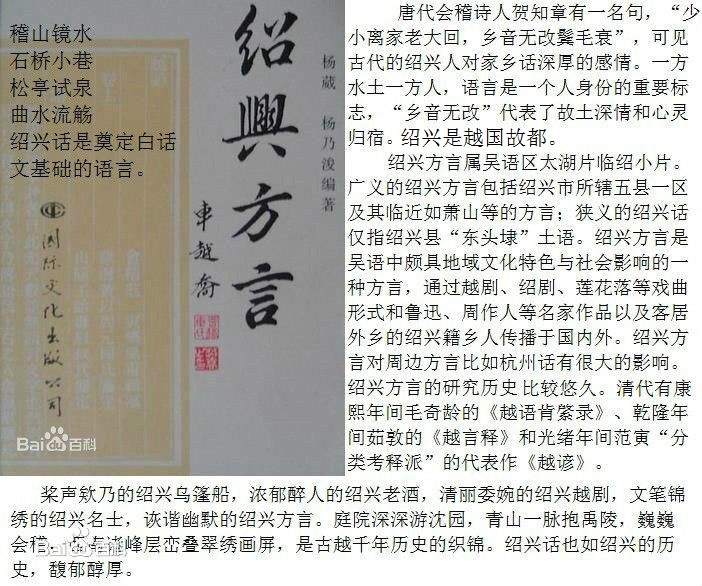 稽山镜水
石桥小巷
松亭试泉
曲水流觞
绍兴话是奠定白话
文基础的语言。
绍興方言
杨葳 杨乃浚编著
车越乔
国际文化出版公司
Bai百科
唐代会稽诗人贺知章有一名句，“少
小离家老大回，乡音无改鬓毛衰”，可见
古代的绍兴人对家乡话深厚的感情。一方
水土一方人，语言是一个人身份的重要标
志，“乡音无改”代表了故土深情和心灵
归宿。绍兴是越国故都。
绍兴方言属吴语区太湖片临绍小片。
广义的绍兴方言包括绍兴市所辖五县一区
及其临近如萧山等的方言；狭义的绍兴话
仅指绍兴县“东头埭”土语。绍兴方言是
吴语中颇具地域文化特色与社会影响的一
种方言，通过越剧、绍剧、莲花落等戏曲
形式和鲁迅、周作人等名家作品以及客居
外乡的绍兴籍乡人传播于国内外。绍兴方
言对周边方言比如杭州话有很大的影响。
绍兴方言的研究历史比较悠久。清代有康
熙年间毛奇龄的《越语肯綮录》、乾隆年
间茹敦的《越言释》和光绪年间范寅“分
类考释派”的代表作《越谚》。
桨声欸乃的绍兴乌篷船，浓郁醉人的绍兴老酒，清丽委婉的绍兴越剧，文笔锦
绣的绍兴名士，诙谐幽默的绍兴方言。庭院深深游沈园，青山一脉抱禹陵，巍巍
会稽 峰层峦叠翠绣画屏，是古越千年历史的织锦。绍兴话也如绍兴的历
史，馥郁醇厚。
Bai百科